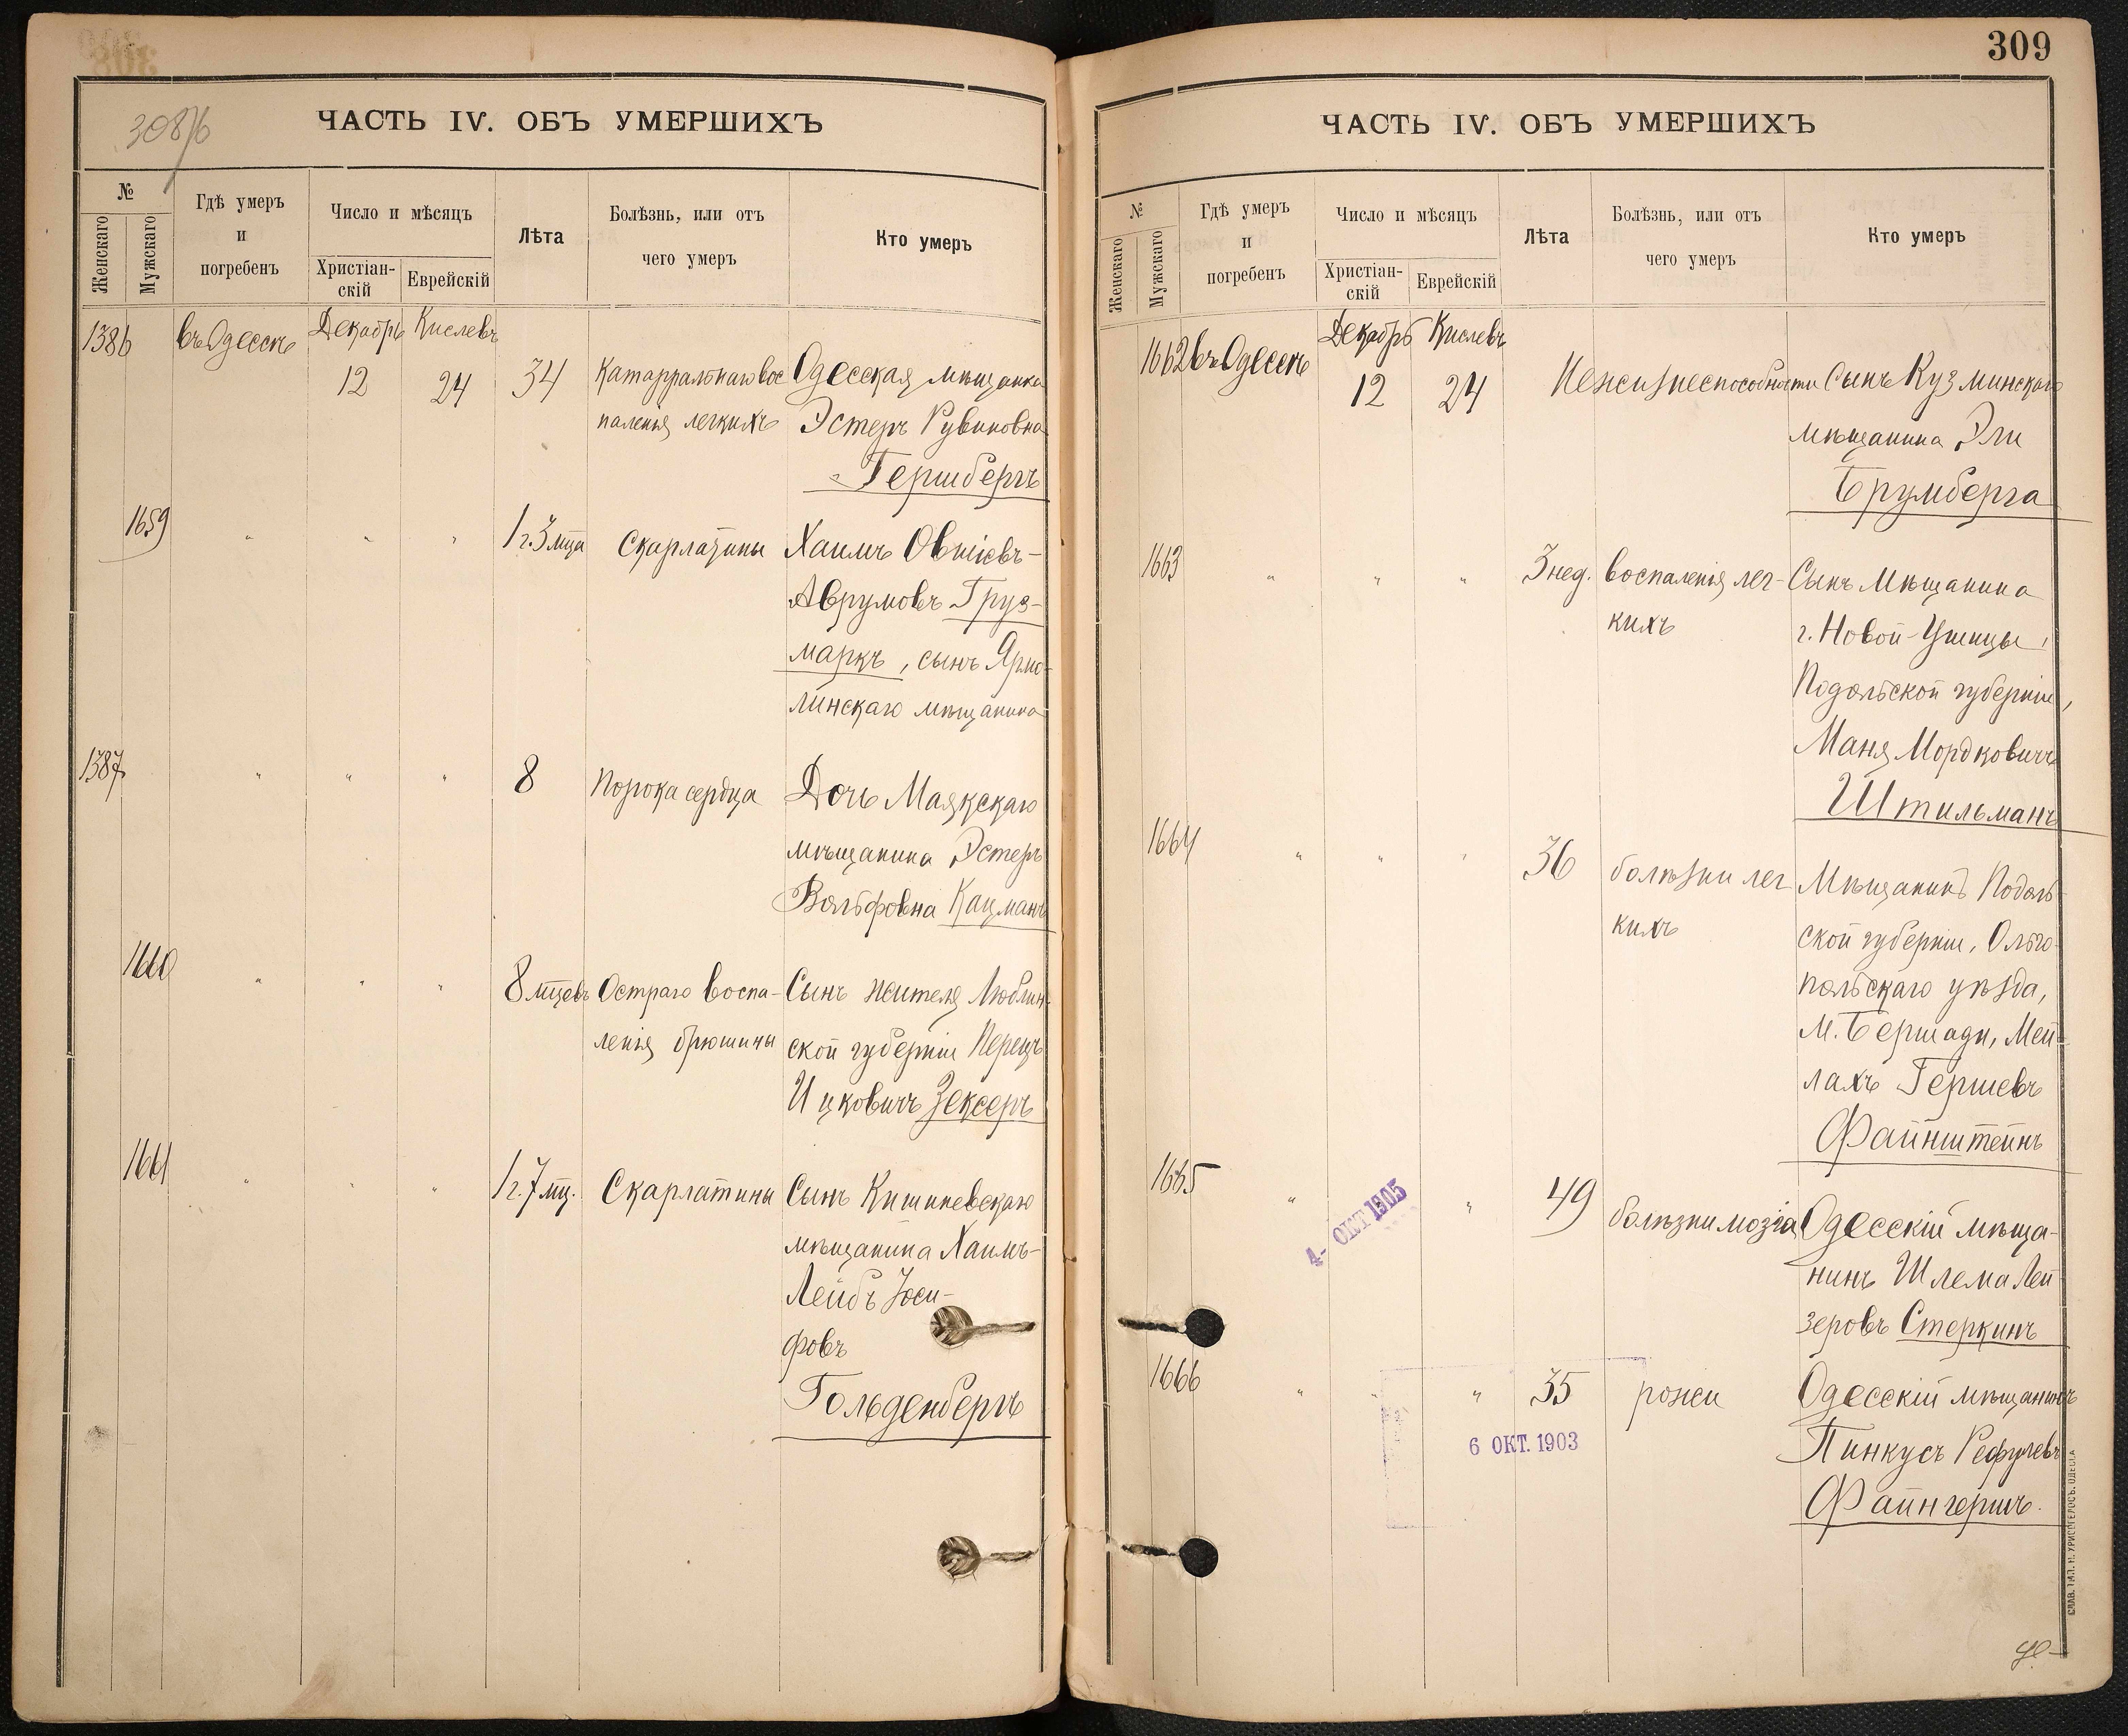 308/б
ЧАСТЬ IV. ОБЪ УМЕРШИХЪ
№
Женскаго
Мужскаго
Гдѣ умеръ
и
погребенъ
Число и мѣсяцъ
Христіан-
скій
Еврейскій
Лѣта
Болѣзнь, или отъ
чего умеръ
Кто умеръ
1386 въ Одессѣ Декабрь Кислевъ
12 24 34 Катарральнаго вос Одесская мѣщанка
паленія легкихъ Эстеръ Рувиновна
Гершбергъ
1659 " " " 1 г. 3 мца Скарлатины Хаимъ Овшіевъ-
Аврумовъ Груз-
маркъ, сынъ Ярмо-
линскаго мѣщанина
1387 " " " 8 Порока сердца Дочь Маякскаго
мѣщанина Эстеръ
Вольфовна Кацманъ
1660 " " " 8 мцевъ Остраго воспа- Сынъ жителя Люблин-
ленія брюшины ской губерніи Перецъ
Ицковичъ Зексеръ
1661 " " " 1 г. 7 мц. Скарлатины Сынъ Кишиневскаго
мѣщанина Хаимъ-
Лейбъ Іоси-
фовъ
Гольденбергъ
309
ЧАСТЬ IV. ОБЪ УМЕРШИХЪ
№
Женскаго
Мужскаго
Гдѣ умеръ
и
погребенъ
Число и мѣсяцъ
Христіан-
скій
Еврейскій
Лѣта
Болѣзнь, или отъ
чего умеръ
Кто умеръ
1662 въ Одессѣ Декабрь Кислевъ
12 24 Нежизнеспособности Сынъ Кузминскаго
мѣщанина Эли
Брумберга
1663 " " " 3 нед. воспаленія лег- Сынъ мѣщанина
кихъ г. Новой-Ушицы,
Подольской губерніи,
Маня Мордковичъ
Штильманъ
1664 " " " 36 болѣзни лег Мѣщанинъ Подоль-
кихъ ской губерніи, Ольго-
польскаго уѣзда,
м. Бершади, Мей-
лахъ Гершевъ
Файнштейнъ
1665 " 4- ОКТ 1905 " 49 болѣзни мозга Одесскій мѣща-
нинъ Шлема Лей
зеровъ Стеркинъ
1666 " " 35 рожи Одесскій мѣщанинъ
6 ОКТ. 1903
Пинкусъ Рефулевъ
Файнгершъ.
СЛАВ. ТИП. Н. ХРИСОГЕЛОСЪ. ОДЕССА